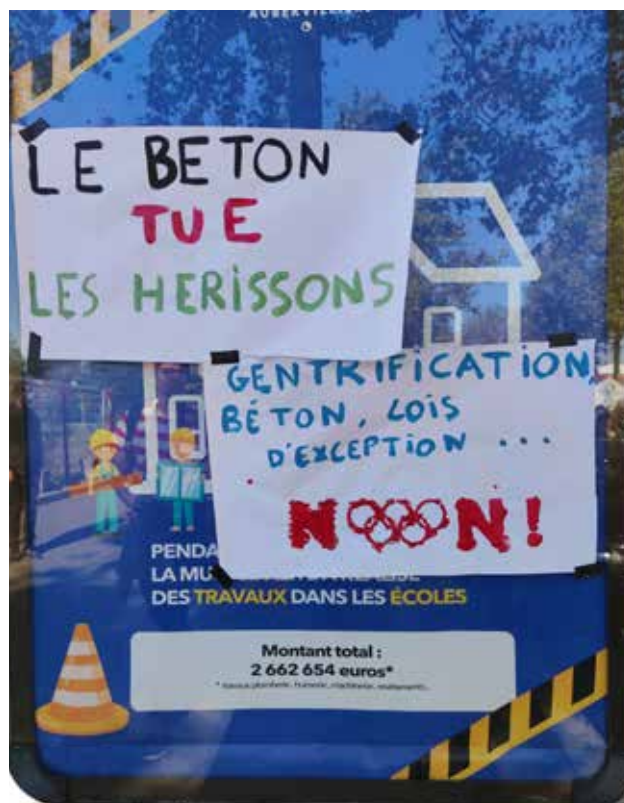 AUBERVILLIERS
LE BETON
TUE
LES HERiSSONS
GENTRiFiCATiON,
BÉTON, LOiS
D'EXCEPTiON ...
NOOON!
PENDA
LA MU
DES TRAVAUX DANS LES ÉCOLES
Montant total :
2 662 654 euros*